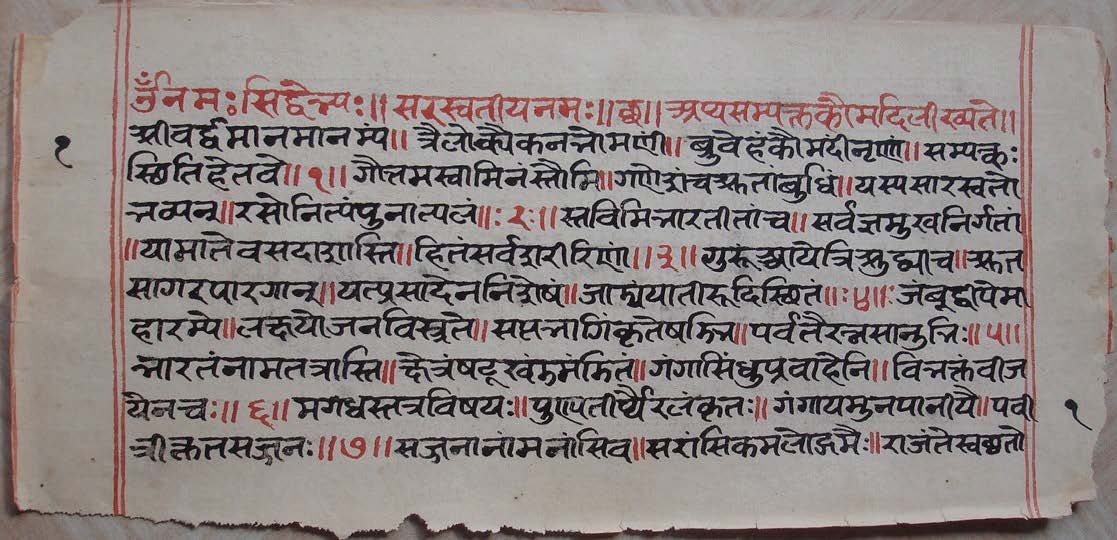 ॐ नमः सिद्धेभ्यः॥ सरस्वतीयनमः॥ छ॥ अथ्यसम्यक्तकौमदिलीख्यते॥
१
श्रीवर्द्धमानमानम्य॥ त्रैलोक्यैकनभोमणीं॥ ब्रुवेहंकौमदींनृणां॥ सम्यक्तः
स्छितिहेतवे॥१॥ गौत्तमस्वामिनंस्तौमि॥ गणेशंचश्रुतांबुधिं॥ यस्यसारस्वतो
भव्यन्॥ रसोनित्यंपुनात्यलं॥ः२ः॥ स्तविमिभारतीतांच॥ सर्वज्ञमुखनिर्गतां
॥यामातेवसदाशास्ति॥ हितंसर्वशरीरिणां॥३॥ गुरूंश्चायेत्रिसुद्ध्याच॥ श्रुत
सागरपारगान्॥ यत्प्रसादेननिशेषं॥ जाड्यंयातीहृदिस्छितं॥ः४॥ः जंबूद्वीपेम
हारम्ये॥ लक्षयोजनविस्त्रृते॥ सप्तभागिंकृतेषड्भि॥ पर्वतैरत्नसानुभिः॥५॥
भारतंनामतत्रास्ति॥ क्षेत्रंषट्खंडमंडितं॥ गंगासिंधुप्रवाहैनि॥ विभक्तंवीज
येनचः॥६॥ मगधस्तत्रविषयः॥ पुण्यतीर्थ्यैरलंकृतः॥ गंगायमुनपानीयै॥ पवी
१
त्रीक्रतसज्जनः॥७॥ सज्जनानांमनांसिव॥ सरांसिकमलोद्गमैः॥ राजंतेस्वछतो